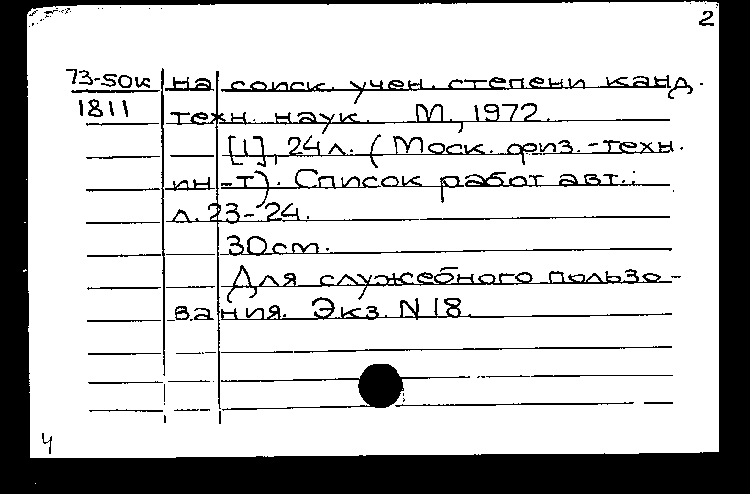 2
73-50к на соиск. учен. степени канд.
1811 техн. наук. М., 1972.
[1], 24 л. (Моск. физ.-техн.
ин-т). Список работ авт.:
л. 23-24.
30 см.
Для служебного пользо-
вания. Экз. N 18.
4